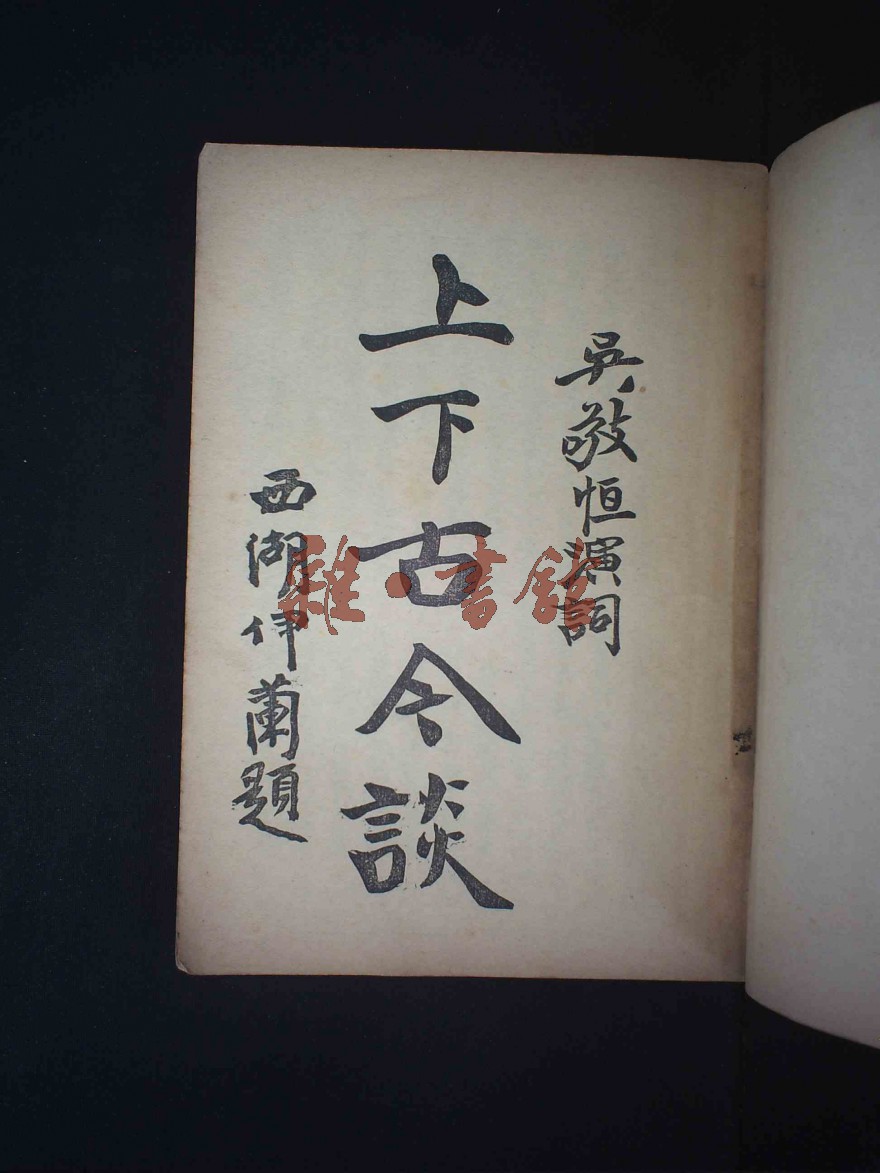 吳敬恒演詞
上下古今談
西湖伊蘭題
雜·書館